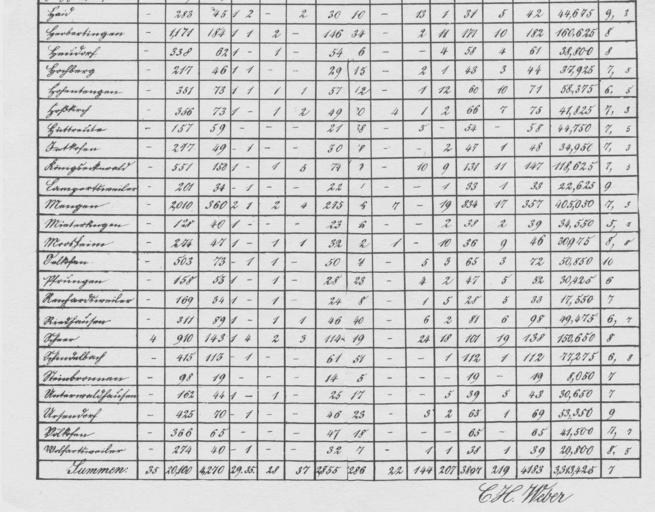 Haid - 283 45 1 2 - 2 30 10 - 13 1 31 5 42 44,675 9, 3
Herbertingen - 1,171 184 1 1 2 - 146 34 - 2 11 171 10 182 160,625 8
Heudorf - 338 62 1 - 1 - 54 6 - - 4 58 4 61 38,800 8
Hochberg - 217 46 1 1 - - 29 15 - 2 1 43 3 44 37,925 7, 5
Hohentengen - 351 73 1 1 1 1 57 12 - 1 12 60 10 71 58,375 6, 5
Hoßkirch - 356 73 1 - 1 2 49 4 1 2 66 7 73 41,825 7, 3
Hüttreute - 157 59 - - - - 21 - 3 - 54 - 58 44,750 7, 5
- 217 49 - 1 - - 30 - - 2 47 1 48 34,950 7, 3
Königseckwald - 551 152 1 - 1 5 74 - 10 9 131 11 147 118,625 7,
Lampertsweiler - 201 34 - 1 - - 22 - - 1 33 1 33 22,625 9
Mengen - 2010 360 2 1 2 4 285 6 7 - 19 334 17 357 405,030 7, 3
Mieterkingen - 128 40 1 - - - 23 6 - - 2 38 2 39 34,550 5,
Moosheim - 274 47 1 - 1 1 32 2 1 - 10 36 9 46 30975 8,
- 503 73 - 1 1 - 50 - 5 3 65 3 72 50,850 10
Pfrungen - 158 53 1 - 1 - 28 23 - 4 2 47 5 52 30,425 6
Renhardsweiler - 169 34 1 - 1 - 24 8 - 1 5 28 5 33 17,550 7
Riedhausen - 311 89 1 - 1 1 46 40 - 6 2 81 6 98 49,475 6, 7
Scheer 4 910 143 1 4 2 3 114 19 - 24 18 101 19 138 150,650 8
Schindelbach - 415 113 - 1 - - 61 51 - - 1 112 1 112 77,275 6, 8
Steinbronnen - 98 19 - - - - 14 5 - - - 19 - 19 8,050 7
Unterwaldhausen - 162 44 1 - 1 - 25 17 - - 5 39 5 43 30,650 7
Ursendorf - 425 70 - 1 - - 46 23 - 3 2 65 1 69 53,350 9
Völlkofen - 366 65 - - - - 47 18 - - - 65 - 65 41,500 7, 7
Wolfartsweiler - 274 40 - 1 - - 32 7 - 1 1 38 1 39 29,800 8, 5
Summen: 35 20,100 4,270 29. 35. 28 37 2855 286 22 144 207 3897 219 4183 3,313,425 7
C. H. Weber